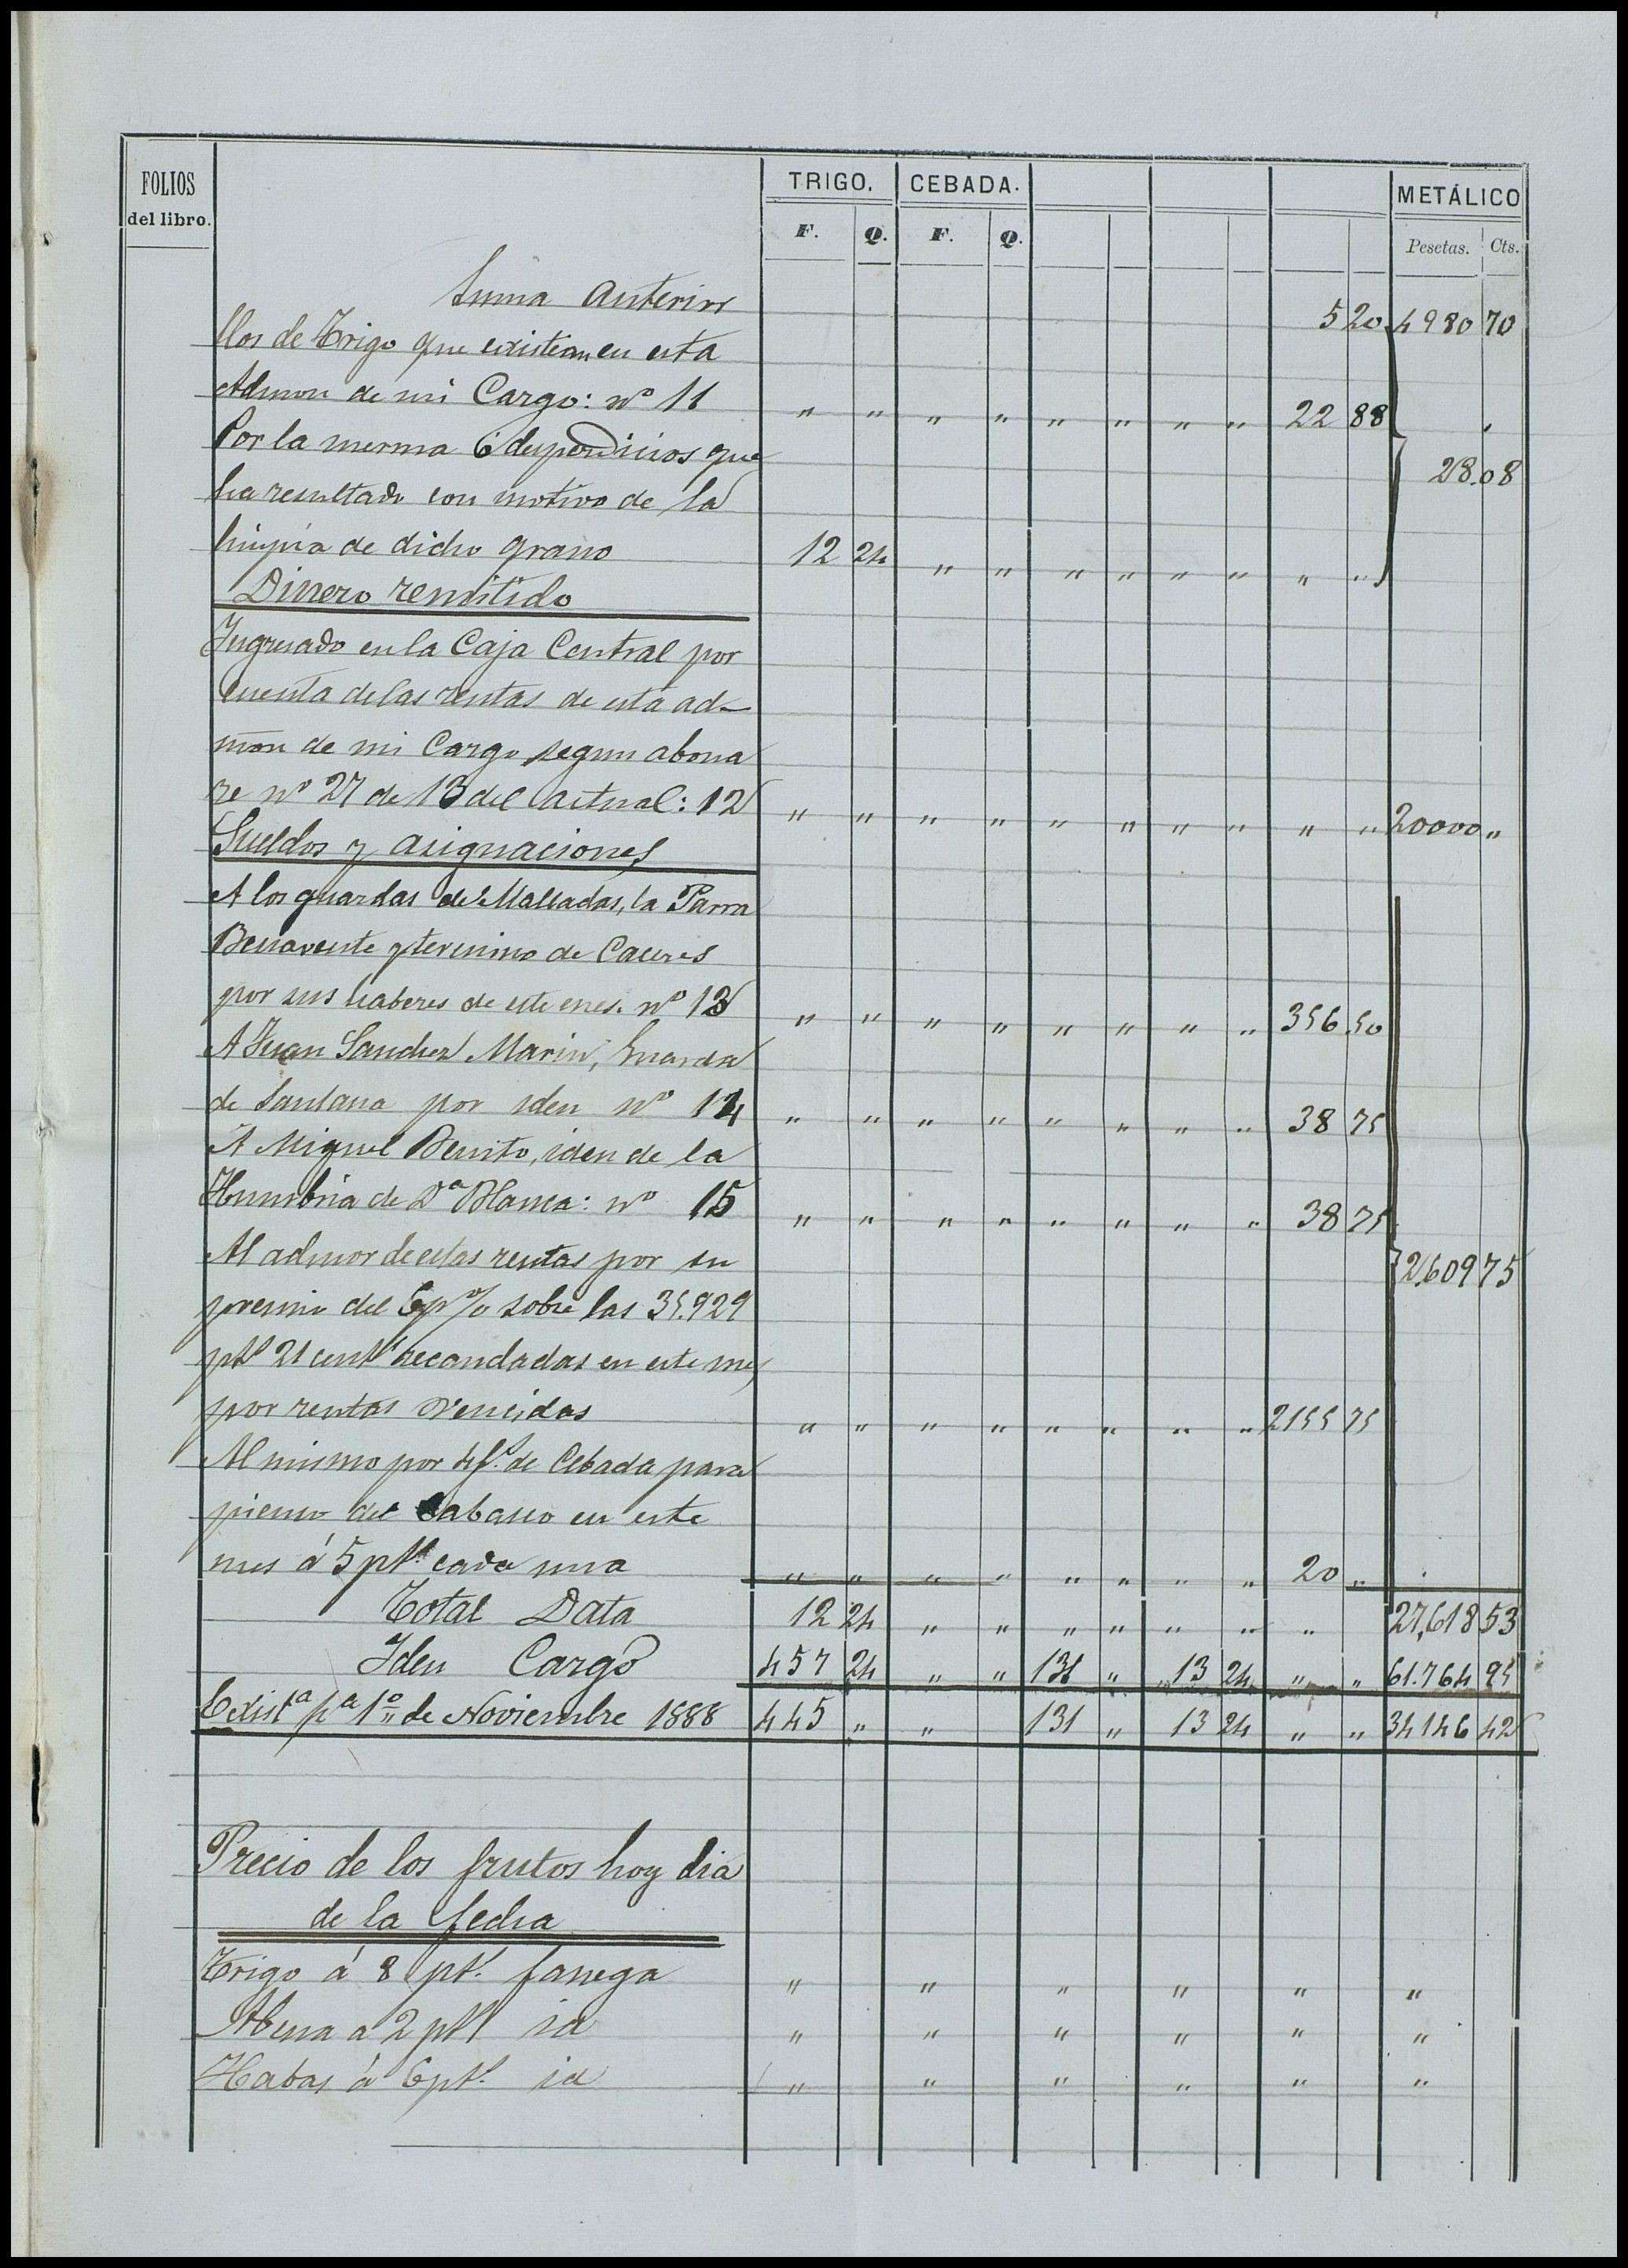 FOLIOS del libro. TRIGO. CEBADA. METÁLICO
F. Q. F. Q. Pesetas. Cts.
Suma anterior 5 20 4980 70
llos de Trigo que existian en esta
Admon de mi Cargo: nº 11 " " " " " " " " 22 88
Por la merma ó desperdicios que 28.08
ha resultado con motivo de la
limpia de dicho grano 12 24 " " " " " " " "
Dinero remitido
Ingresado en la Caja Central por
cuenta de las rentas de esta ad-
mon de mi Cargo segun abona
re nº 27 de 13 del actual: 12 " " " " " " " " " " 20000 "
Sueldos y asignaciones
A los guardas de Malladas, la Parra
Benavente y termino de Caceres
por sus haberes de este mes. nº 13 " " " " " " " " 356.50
A Juan Sanchez Marin, Guarda
de Santana por iden nº 14 " " " " " " " " 38 75
A Miguel Benito, iden de la
Humbria de Dª Blanca: nº 15 " " " " " " " " 38 75
Al admor de estas rentas por su 2,609 75
premio del 6 p% sobre las 35.929
ptˢ 21 centˢ recaudadas en este mes
por rentas vencidas " " " " " " " " 2155 75
Al mismo por 4 fˢ de Cebada para
pienso del caballo en este
mes á 5 ptˢ cada una " " " " " " " " 20 "
Total Data 12 24 " " " " " " " 27,618 53
Iden Cargo 457 24 " " 131 " 13 24 " " 61.764 95
Existª pª 1º de Noviembre 1888 445 " " 131 " 13 24 " " 34146 42
Precio de los frutos hoy dia
de la fecha
Trigo á 8 ptˢ fanega " " " " " "
Abena a 2 ptˢ id " " " " " "
Habas á 6 ptˢ id " " " " " "